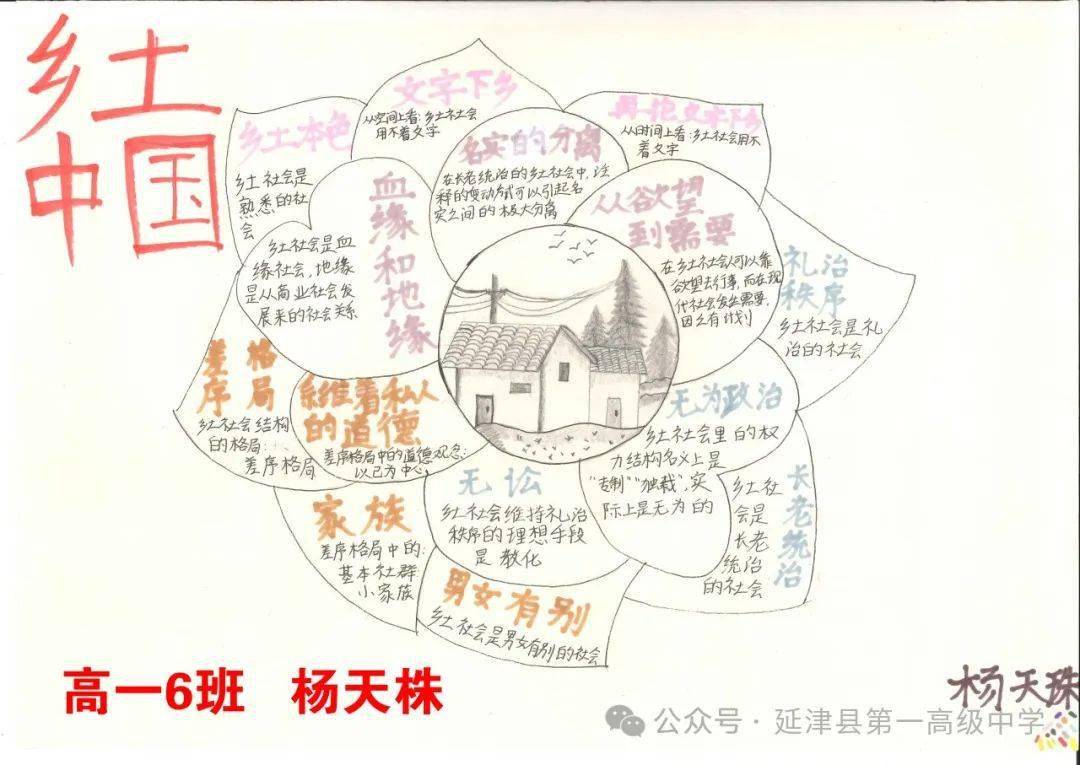 乡土
中国
乡土本色
乡土社会是
熟悉的社
会
文字下乡
从空间上看:乡土社会
用不着文字
再论文字下乡
从时间上看:乡土社会用不
着文字
名实的分离
在长老统治的乡土社会中,注
释的变动方式可以引起名
实之间的极大分离
从欲望
到需要
在乡土社会人可以靠
欲望去行事,而在现
代社会发生需要,
因之有计划
礼治
秩序
乡土社会是礼
治的社会
血缘和地缘
乡土社会是血
缘社会,地缘
是从商业社会发
展来的社会关系
差序格局
乡土社会结构
的格局:
差序格局
维着私人
的道德
差序格局中的道德观念:
以己为中心
无为政治
乡土社会里的权
力结构名义上是
“专制”“独裁”,实
际上是无为的
长老统治
乡土社
会是
长老
统治
的社会
无讼
乡土社会维持礼治
秩序的理想手段
是教化
家族
差序格局中的:
基本社群
小家族
男女有别
乡土社会是男女有别的社会
高一6班 杨天株
杨天珠
公众号·延津县第一高级中学